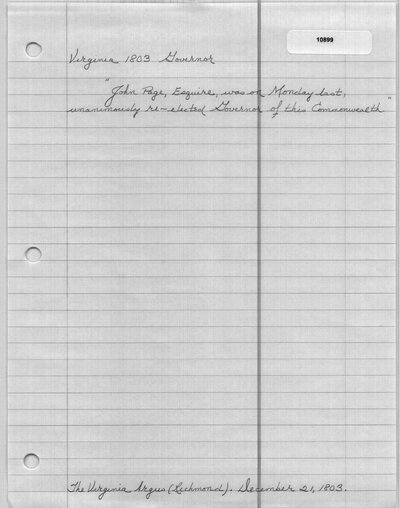 10899
Virginia 1803 Governor
"John Page, Esquire, was on Monday last,
unanimously re-elected Governor of this Commonwealth"
The Virginia Argus (Richmond). December 21, 1803.